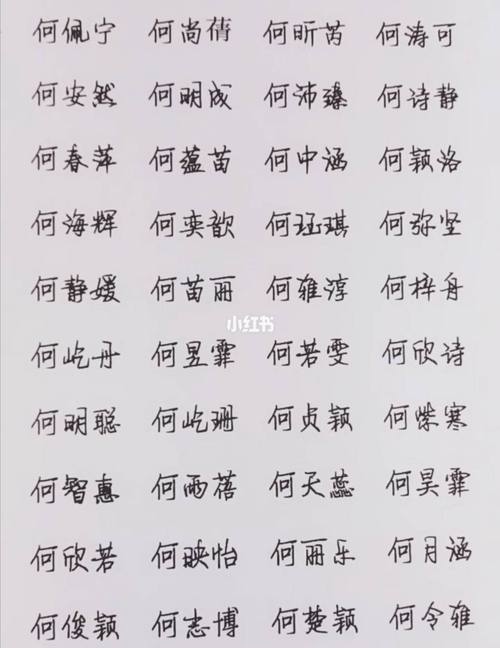 何佩宁 何尚蒨 何昕芮 何涛可
何安然 何明成 何沛臻 何诗静
何春萍 何蕴苗 何中涵 何颖洛
何海辉 何奕歆 何珏琪 何弥坚
何静媛 何苗丽 何雅淳 何梓舟
小红书
何屹丹 何昱霏 何若雯 何欣诗
何明聪 何屹珊 何贞颖 何紫寒
何智惠 何雨蓓 何天蕊 何昊霏
何欣若 何映怡 何丽乐 何月涵
何俊颖 何志博 何楚颖 何令雅